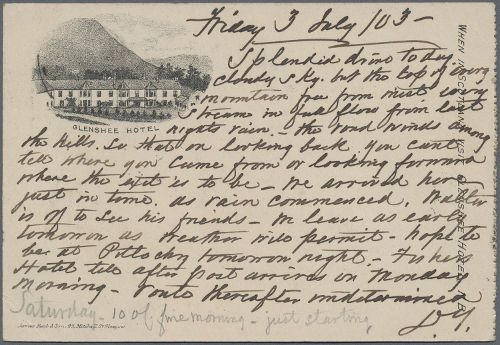 Friday 3 July / 03 -
Splendid drive to day
cloudy sky. but the top of every
mountain free from mist every
stream in full flow from last
nights rain. The road winds among
the hills. So that on looking back you cant
tell where you came from or looking forward
where the exit is to be - We arrived here
just in time as rain commenced,
is off to see his friends - We leave as early
tomorrow as weather will permit - hope to
be at Pitlochry tomorrow night - Fishers
Hotel till after Post arrives on Monday
Morning - route thereafter undetermined
Saturday - 10 o/c fine morning - just starting
GLENSHEE HOTEL
WHEN IN